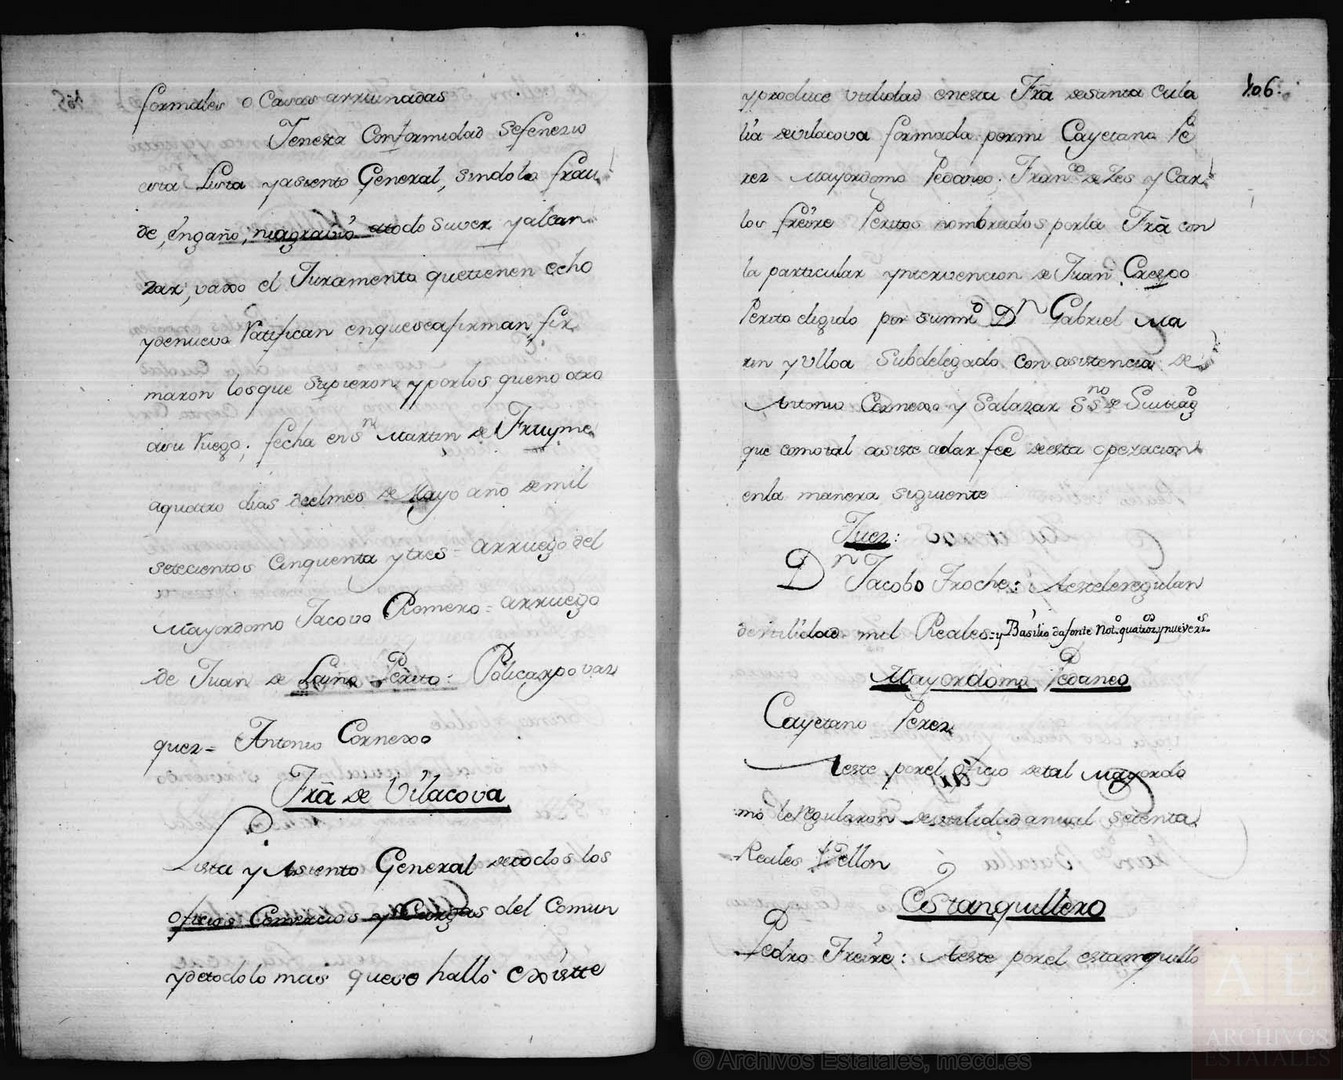 formales o Casas arruinadas
Tenesta Conformidad sefenezio
esta Lista yasiento General, sindolo frau
de, engaño, niagravio atodo suver yalcan
zar, vaxo el Juramento quetienen echo
ydenuevo Ratifican enqueseafirman, fir
maron losque supieron, yporlos queno otro
asu Ruego; fecha en Sn Martin de Fruyme
aquatro dias delmes de Mayo año demil
setecientos Cinquenta ytres = arruego del
Mayordomo Jacovo Romero = arruego
de Juan de Laiño Perito: Policarpo vaz
quez = Antonio Cornexo
Frã de Vilacova
Lista y Asiento General detodos los
oficios Comercios y Cargas del Comun
ydetodolo mas quese halló existte
yproduce utilidad enesta Frã desanta eula
lia devilacova formada pormi Cayetano Pe
rez Mayordomo Pedaneo: Franco de Zes y Car
los freire Peritos nombrados porla Frã con
la particular yntervencion de Juan Crespo
Perito elegido por sumrd Dn Gabriel Ma
rin y Ulloa Subdelegado con asistencia de
Antonio Cornexo y Salazar Ssno de Santiago
que comotal asiste adar fee desta operacion
enla manera siguiente
106.
Juez:
Dn Jacobo Troche: Aesteleregulan
deutilidad mil Reales = y Basilio dafonte Noto quatroz. ynueve rs.
Mayordomo Pedaneo
Cayetano Perez
Aeste porel oficio detal Mayordo
mo leregularon deutilidad anual setenta
Reales Vellon
Estanquillero
Pedro Freire: Aeste porel estanquillo
© Archivos Estatales, mecd.es
AE
ARCHIVOS
ESTATALES